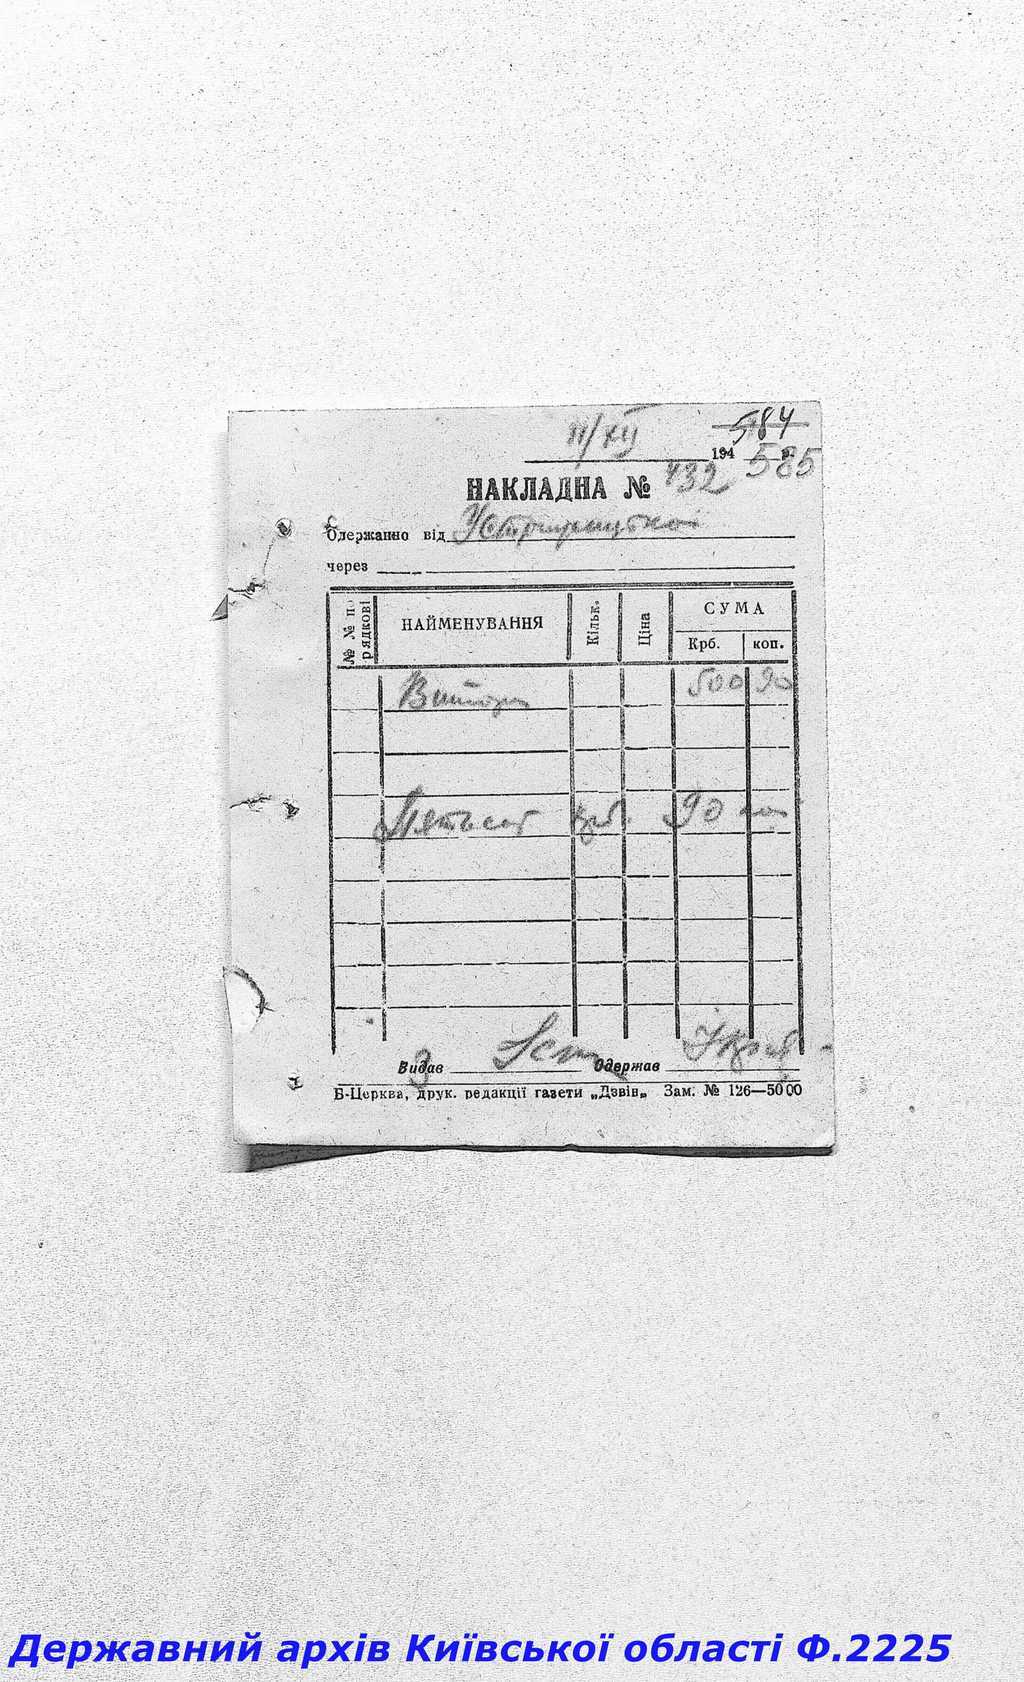 584
11/XII 194 г. 585
НАКЛАДНА № 432
Одержанно від
через
№ № по рядкові НАЙМЕНУВАННЯ Кільк. Ціна СУМА
Крб. коп.
500 90
Пятьсот крб. 90 коп
Видав Одержав
Б-Церква, друк. редакції газети „Дзвін„ Зам. № 126—5000
Державний архів Київської області Ф.2225